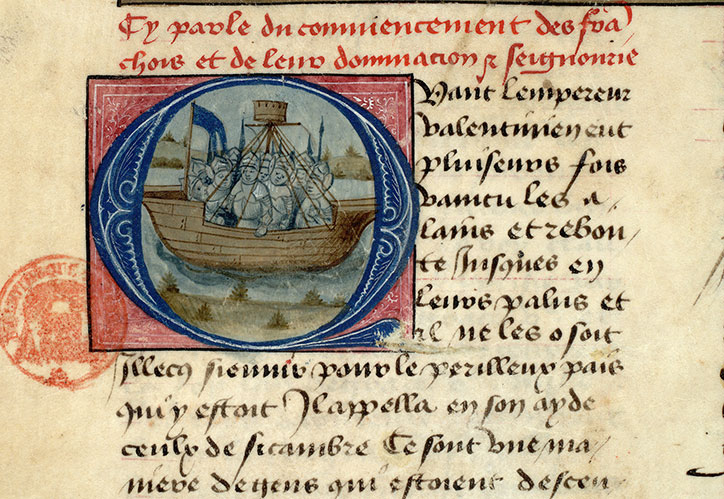 Cy parle du commencement des frā
chois et de leur dominacion et seignourie
Quant lempereur
valentinien eut
pluiseurs fois
vaincu les a
lains et rebou
te Jusques en
leurs palus et
ql ne les osoit
Illecq sieuuir pour le perilleux pais
qui y estoit Il appella en son ayde
ceulx de sicambre Ce sont vne ma
niere de gens qui estoient descen